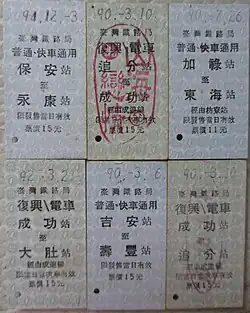 94.12.-3.
臺灣鐵路局
普通·快車通用
保安站
至
永康站
限發售當日有效
票價15元
90.-3.10.
臺灣鐵路局
復興\電車
追分站
至
成功站
經由成追線
票價15元
臺灣鐵路局
普通·快車通用
加祿站
至
東海站
經由枋寮站
限發售當日有效
票價11元
臺灣鐵路局
復興\電車
成功站
至
大肚站
經由成追線
限發售當日有效
票價15元
90.-3.-6.
臺灣鐵路局
普通·快車通用
吉安站
至
壽豐站
限發售當日有效
票價15元
臺灣鐵路局
復興\電車
成功站
至
追分站
經由成追線
限發售當日有效
票價15元